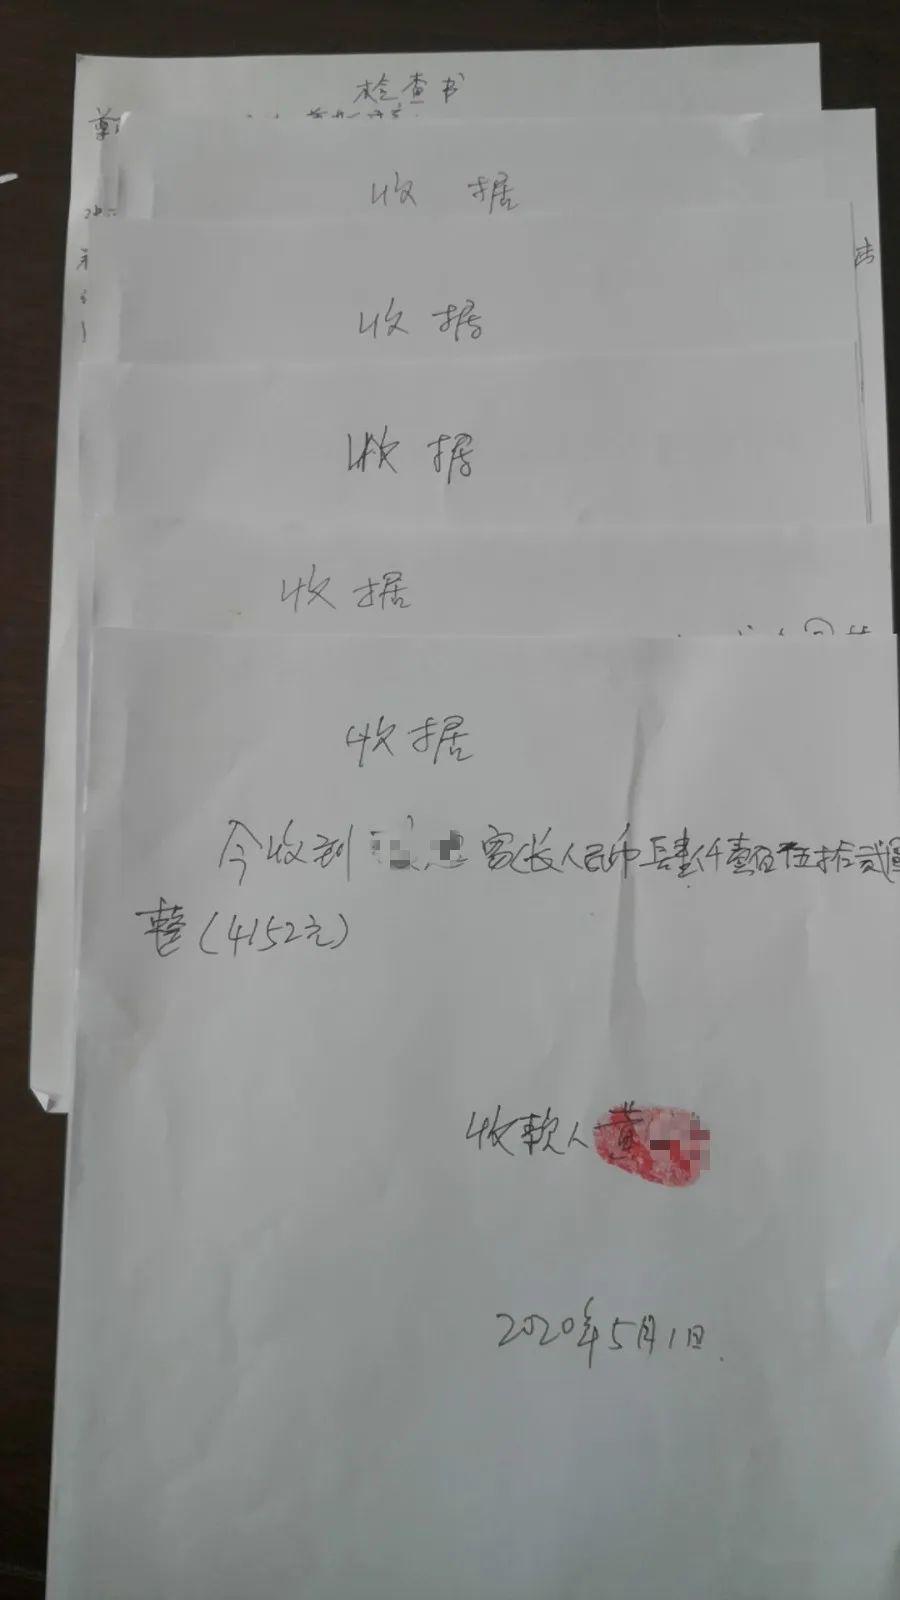 检查书
尊
收 据
收据
收据
收据
收据
今收到 家长人民币肆仟壹佰伍拾贰圆
整(4152元)
收款人黄
2020年5月1日.